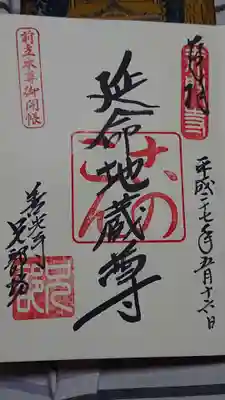 奉拝
平成二七年五月十六日
延命地蔵尊
前立本尊御開帳
善光寺
兄部坊